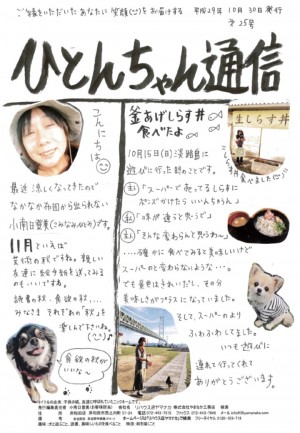 ご縁をいただいたあなたに笑顔(^^)をお届けする
平成29年 10月 30日発行
第25号
ひとんちゃん通信
こんにちは
最近 涼しくなってきたので
なかなか布団から出られない
小南日登美(こみなみひとみ)です。
11月といえば
芸術の秋ですね。親しい
友達に絵手紙を送ってみる
のもいいですね。
読書の秋・食欲の秋…
みなさま それぞれの「秋」を
楽しんで下さいね。
食欲の秋が
いいな〜
釜あげしらす丼
食べたよ
10月15日(日)淡路島に
遊びに行った時のことです。
私「スーパーで売ってるしらすに
ポン酢かけたらいいんちゃうん」
「味が違うと思うで」
私「そんな変わらんと思うわ〜」
……確かに食べてみると美味しいけど
スーパーのと変わらないような…。
でも景色はきれいだし、その分
美味しさがプラスになっていました。
そして、スーパーのより
ふわふわしてました。
いつも遊びに
連れて行ってくれて
ありがとうございます。
生しらす丼